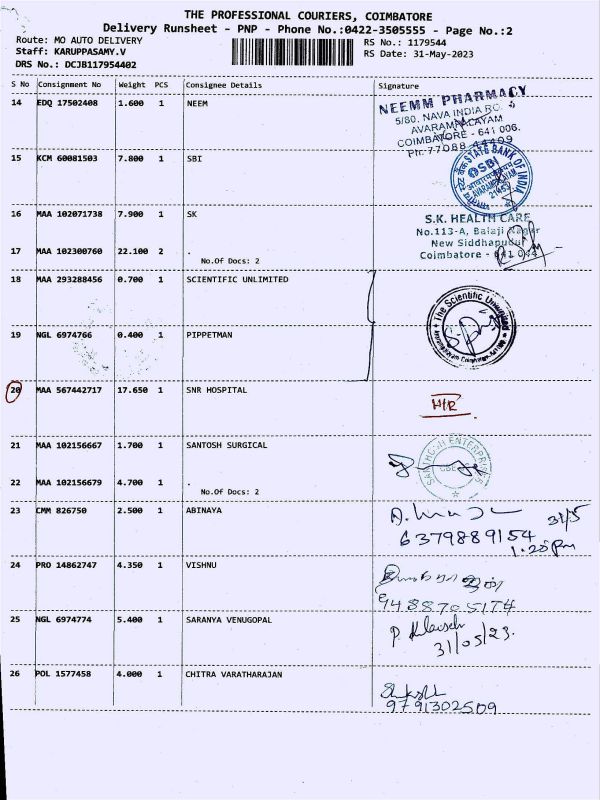 THE PROFESSIONAL COURIERS, COIMBATORE
Delivery Runsheet - PNP - Phone No.:0422-3505555 - Page No.:2
Route: MO AUTO DELIVERY
Staff: KARUPPASAMY.V
DRS No.: DCJB117954402
RS No.: 1179544
RS Date: 31-May-2023
S No Consignment No Weight PCS Consignee Details Signature
14 EDQ 17502408 1.600 1 NEEM
NEEMM PHARMACY
5/80, NAVA INDIA RO
AVARAMPALAYAM
COIMBATORE - 641 006.
Ph: 77088 44409
15 KCM 60081503 7.800 1 SBI
STATE BANK OF INDIA
SBI
16 MAA 102071738 7.900 1 SK
S.K. HEALTH CARE
No.113-A, Balaji Nagar
New Siddhapudur
Coimbatore - 641 044
17 MAA 102300760 22.100 2 .
No.Of Docs: 2
18 MAA 293288456 0.700 1 SCIENTIFIC UNLIMITED
The Scientific Unlimited
19 NGL 6974766 0.400 1 PIPPETMAN
20 MAA 567442717 17.650 1 SNR HOSPITAL
H/R
21 MAA 102156667 1.700 1 SANTOSH SURGICAL
SANTHOSH ENTERPRISES
22 MAA 102156679 4.700 1 .
No.Of Docs: 2
23 CMM 826750 2.500 1 ABINAYA
31/5
6379889154
1.20 pm
24 PRO 14862747 4.350 1 VISHNU
9488705174
25 NGL 6974774 5.400 1 SARANYA VENUGOPAL
31/05/23.
26 POL 1577458 4.000 1 CHITRA VARATHARAJAN
9791302509